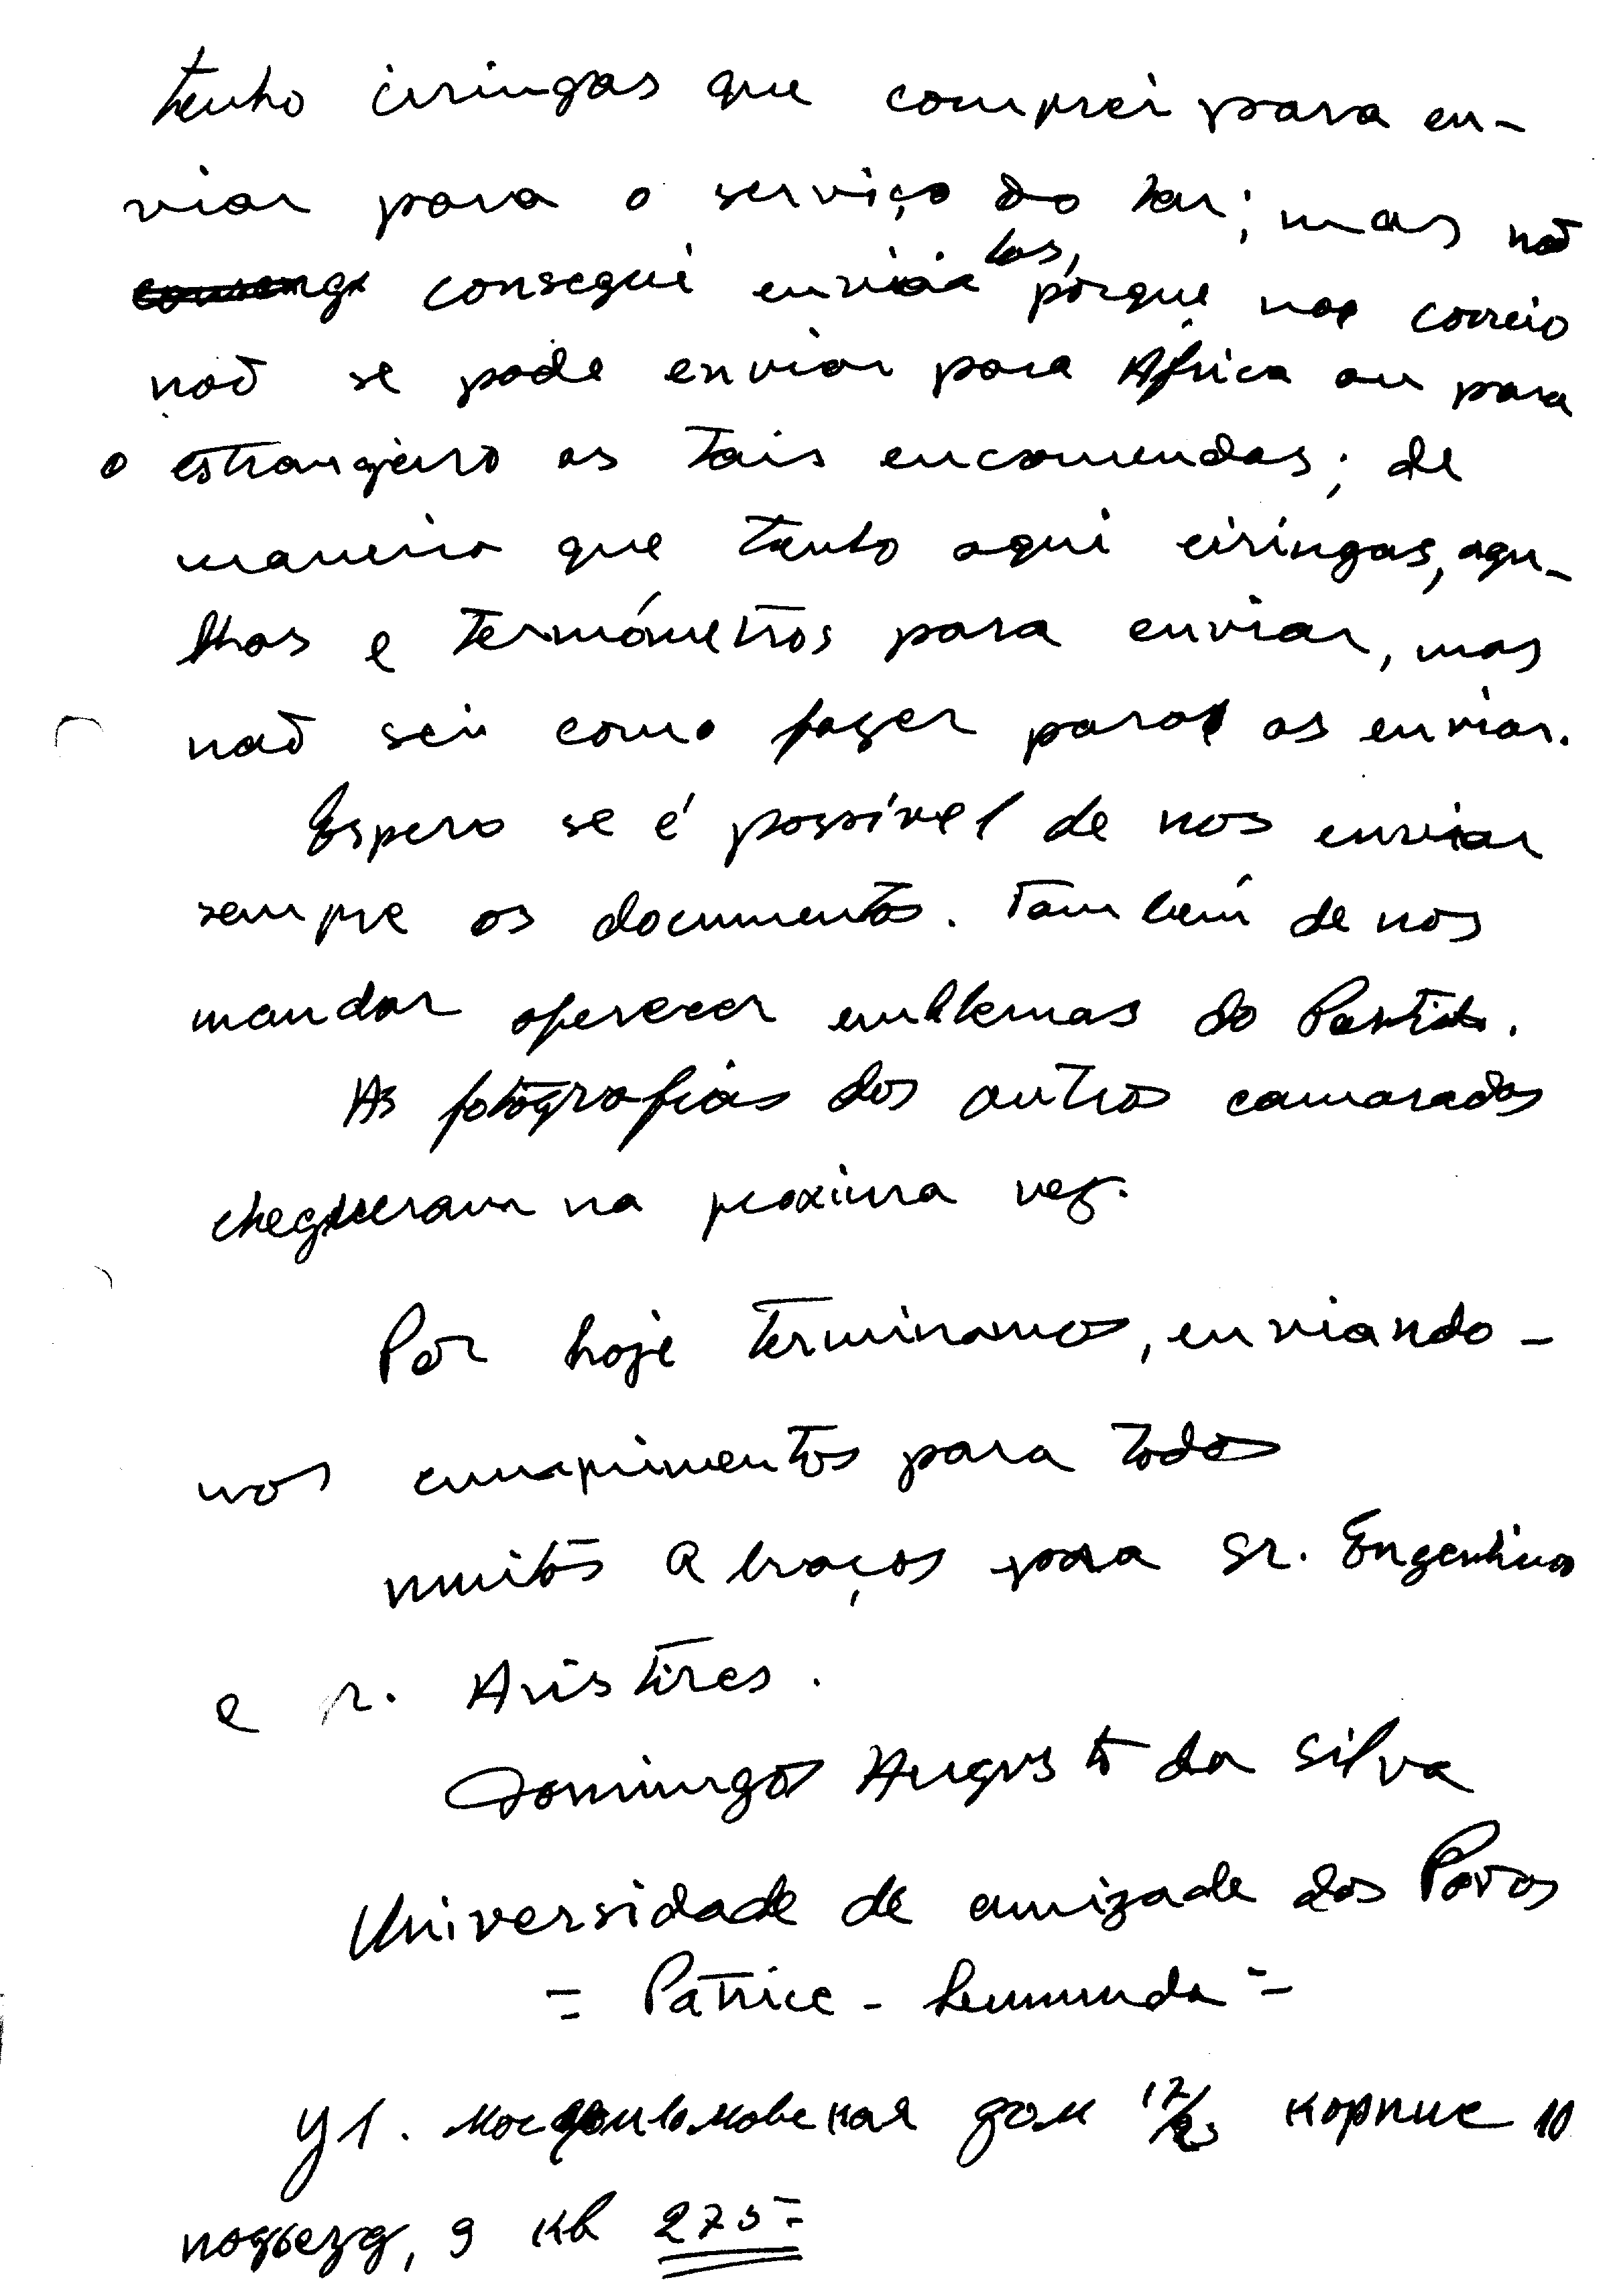 tenho ciringas que comprei para en-
viar para o serviço do lar; mas naõ
consegui enviá-las, porque no correio
naõ se pode enviar para África ou para
o estrangeiro as tais encomendas; de
maneira que tenho aqui ciringas, agu-
lhas e termómetros para enviar, mas
naõ sei como fazer para as enviar.
Espero se é possível de nos enviar
sempre os documentos. Também de nos
mandar oferecer emblemas do Partido.
As fotografias dos outros camaradas
chegueram na proxima vez.
Por hoje terminamos, enviando-
nos cumprimentos para todos
muitos abraços para Sr. Engenheiro
e Sr. Aristires.
Domingos Augusto da Silva
Universidade de amizade dos Povos
= Patrice - Lumumda =
Ул. дом корпус 10
подьезд, 9 кв 275=